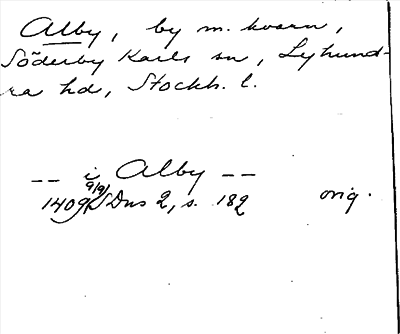 Alby, by m. kvarn,
Söderby Karls sn, Lyhund-
ra hd, Stockh. l.
-- i Alby --
9/9
1409 SDns 2, s. 182 orig.